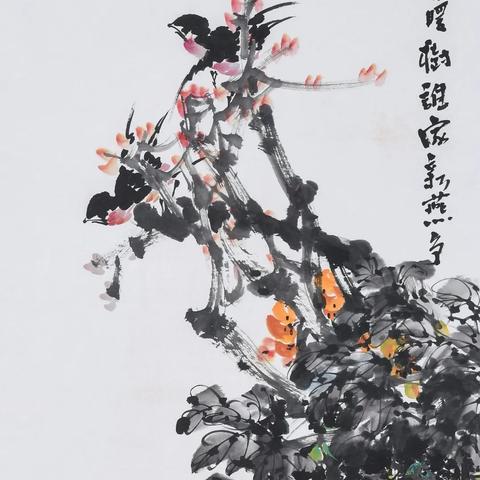 暖樹誰家新燕